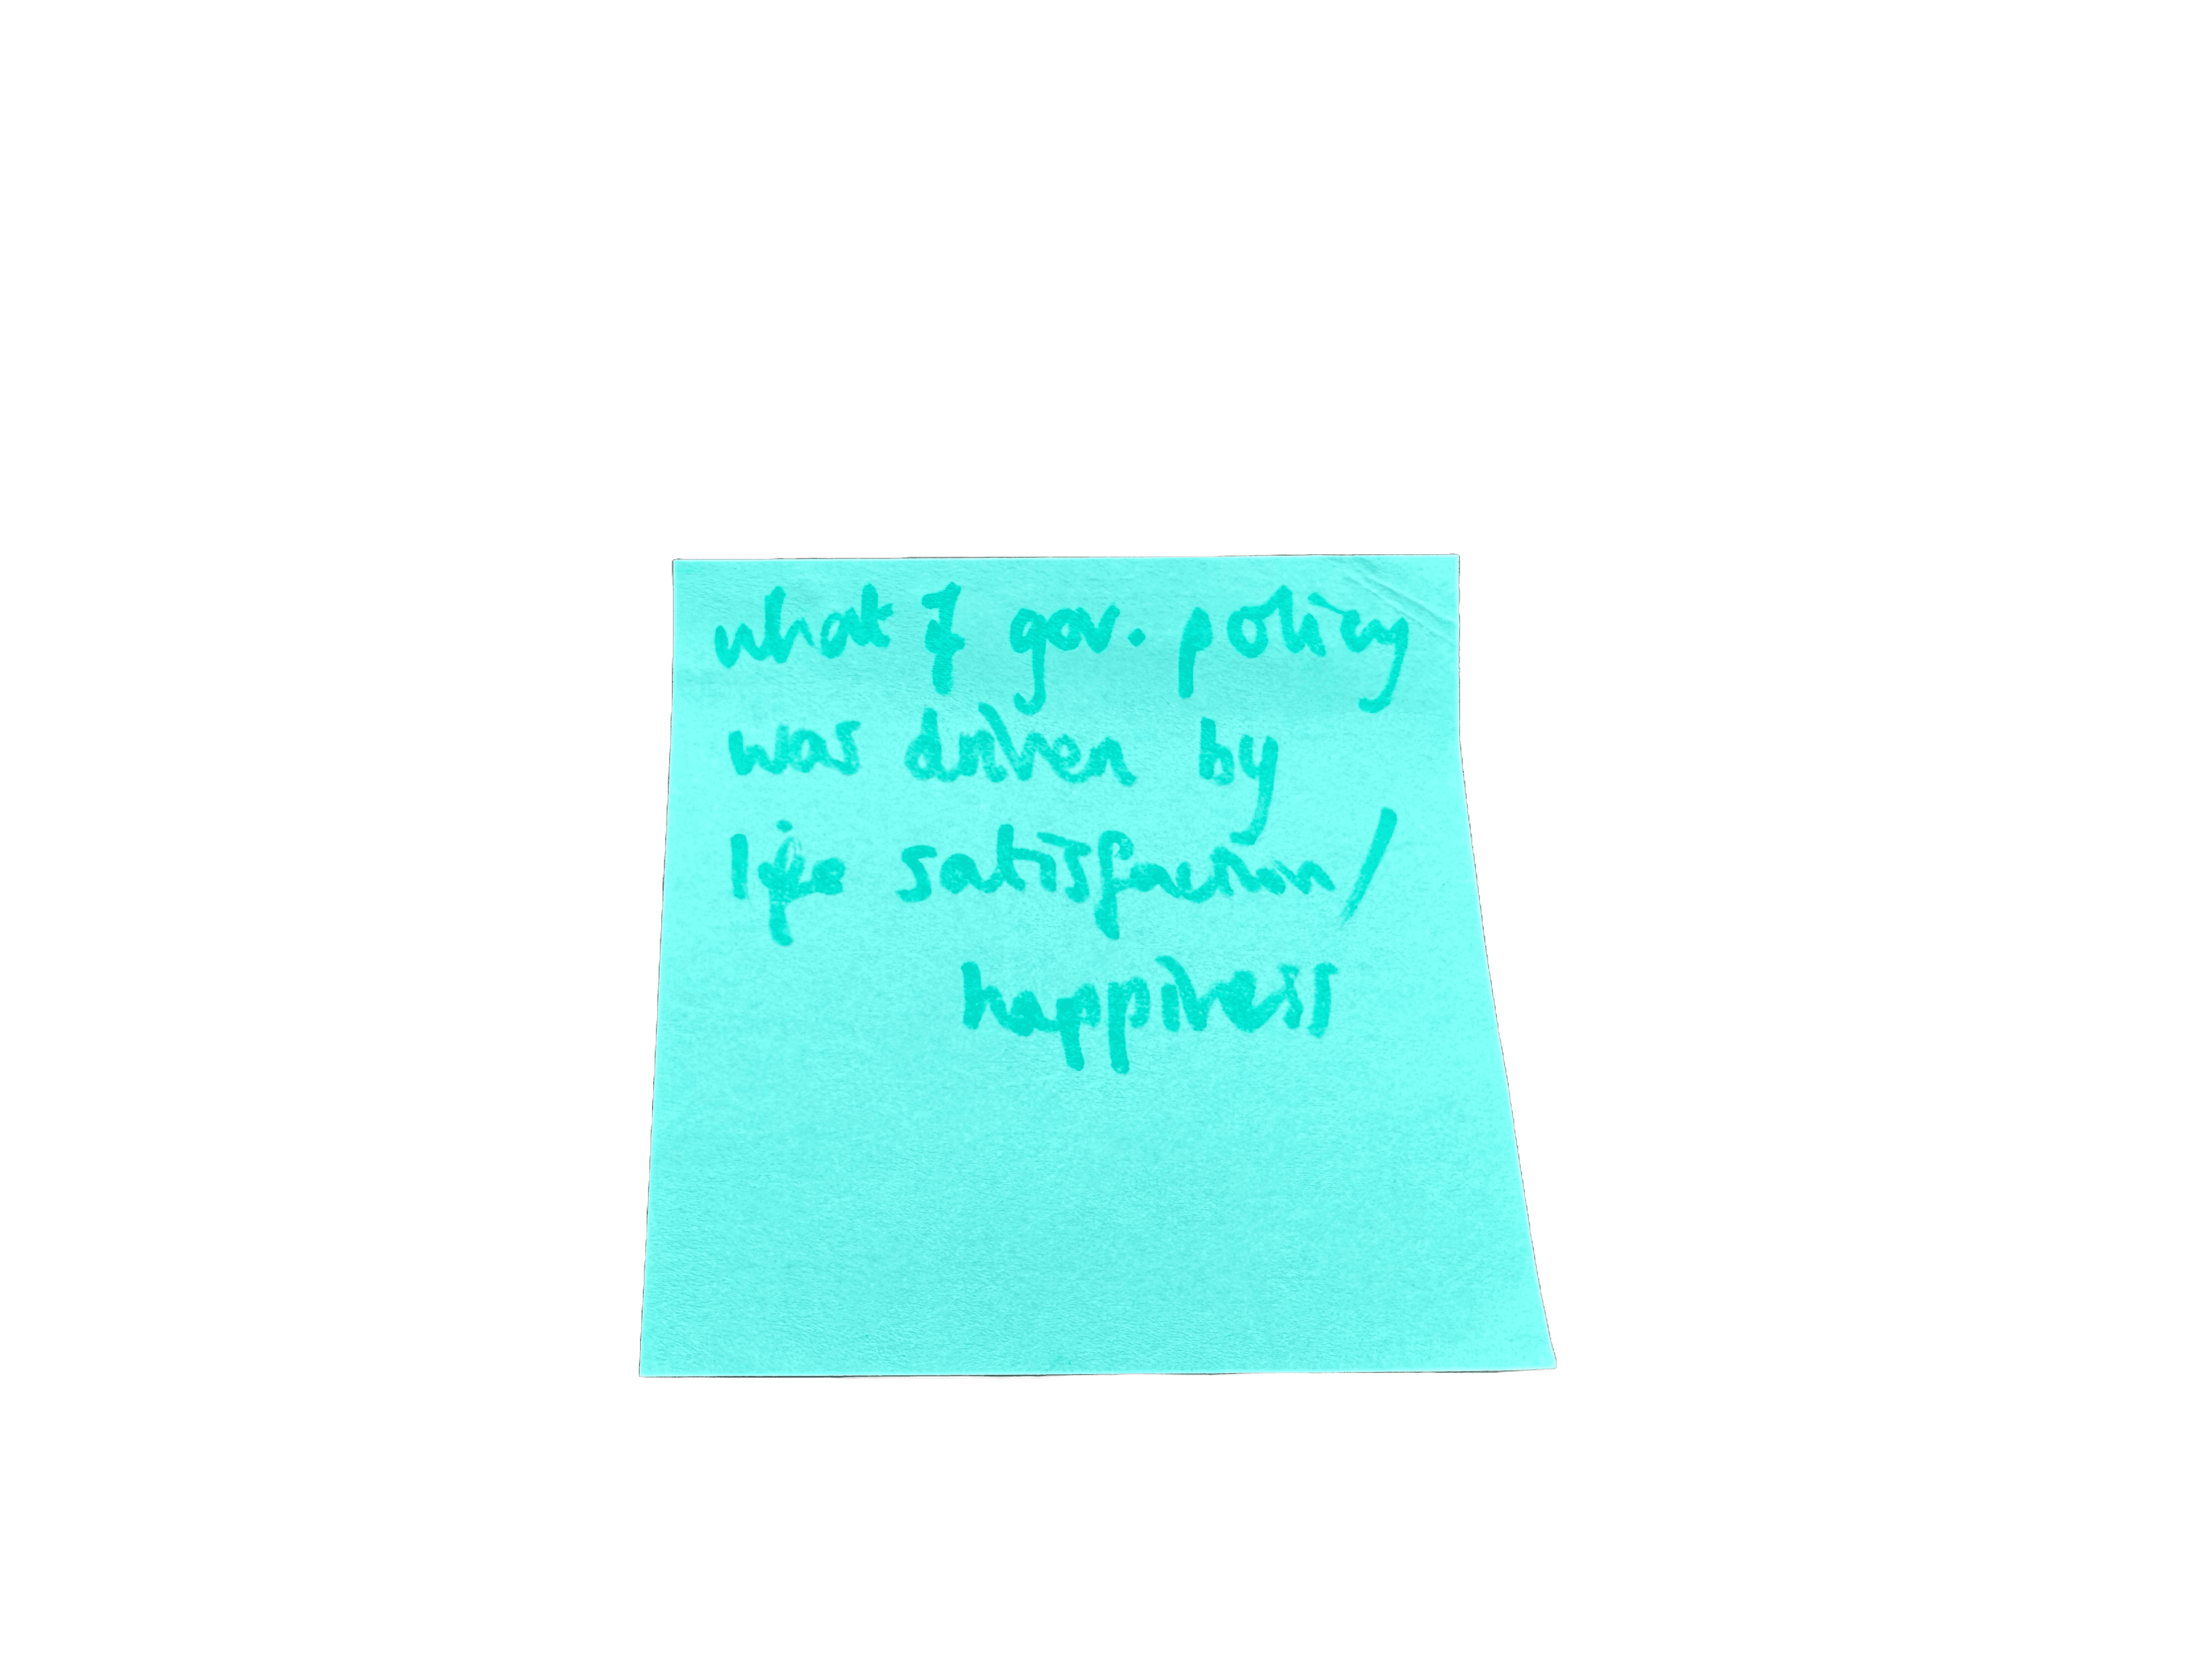 what if gov. policy
was driven by
life satisfaction/
happiness